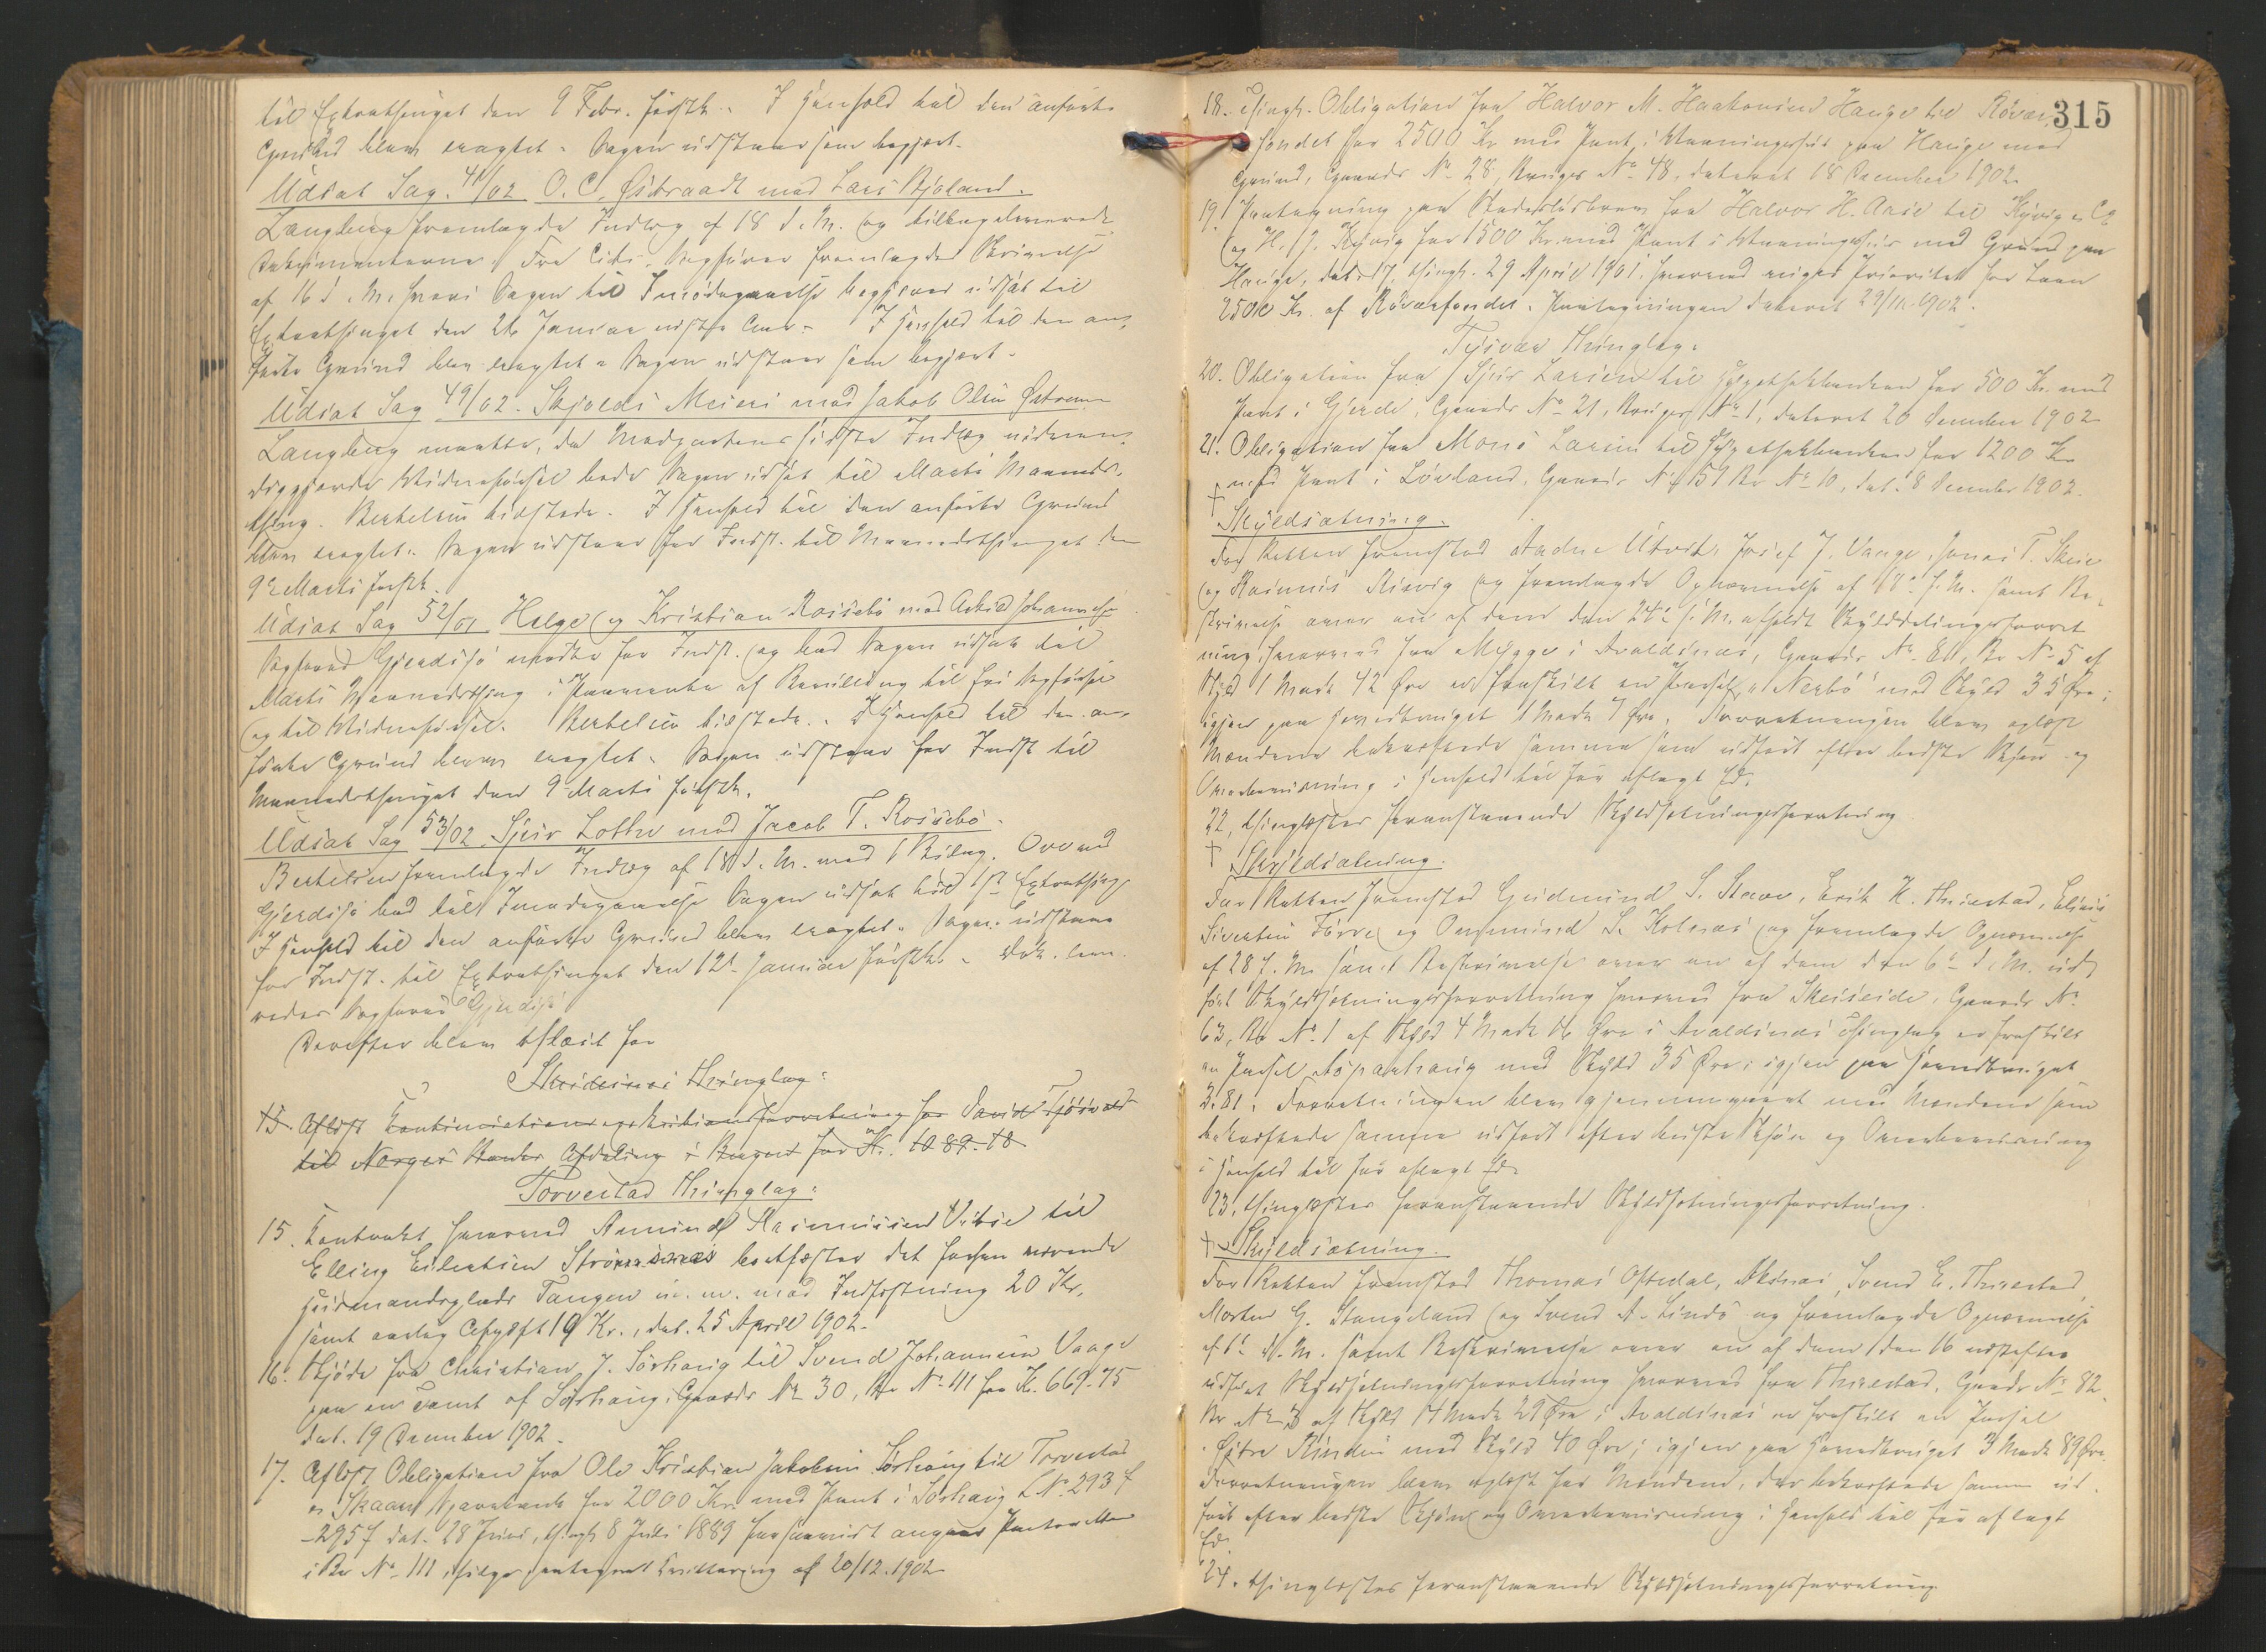 til Extrathinget den 9 Febr. førstk. I Henhold til den anførte
Grund blev eragtet: Sagen udstaar som begjært.
Udsat Sag 41/02 O. C. Østraadt mod Lars Kjøland.
Langberg fremlagde Indlæg af 18 d. M. og tilbageleverede
Dokumenterne. For Citi. Sagfører fremlagdes Skrivelse
af 16 d. M. hvori Sagen til Imødegaaelse begjæres udsat til
Extrathinget den 26 Januar næste Aar. I Henhold til den an-
førte Grund blev eragtet: Sagen udstaar som begjært.
Udsat Sag 49/02. Skjolds Meieri mod Jakob Olsen
Langberg maatte, da Modpartens sidste Indlæg nødven-
diggjorde Vidneførsel bede Sagen udsat til Marts Maaneds-
thing. Bertelsen tilstede. I Henhold til den anførte Grund
blev eragtet: Sagen udstaar for Indst. til Maanedsthinget den
9de Marts førstk.
Udsat Sag 52/01 Helge og Kristian Rossebø mod Askild Johannesen
Sagfører Gjerdsjø mødte for Indst. og bad Sagen udsat til
Marts Maanedsthing i Paavente af Bevilling til fri Sagførsel
og til Vidneførsel. Bertelsen tilstede. I Henhold til den an-
førte Grund blev eragtet: Sagen udstaar for Indst. til
Maanedsthinget den 9 Marts førstk.
Udsat Sag 53/02. Sjur Lothe mod Jacob T. Rossebø.
Bertelsen fremlagde Indlæg af 18 d. M. med 1 Bilag.
Gjerdsjø bad til Imødegaaelse Sagen udsat til 1ste Extrathing.
I Henhold til den anførte Grund blev eragtet: Sagen udstaar
for Indst. til Extrathinget den 12te Januar førstk. Dok. leve-
redes Sagfører Gjerdsjø
Derefter blev aflæst for
Skudesnes Thinglag:
15. Aflyst for David
til Norges Banks Afdeling i Bergen for Kr. 1089.10
Torvestad Thinglag:
15. Kontrakt hvorved Amund Rasmussen Vibie til
Elling Eilertsen Strømsnes bortfæster det forhen værende
Husmandsplads Tangen m. m. mod Indfæstning 20 Kr.
samt aarlig Afgift 19 Kr., dat. 25 April 1902.
16. Skjøde fra Christian J. Sørhaug til Svend Johannesen Vaage
paa en Tomt af Sørhaug, Gaards No 30, Br No 111 for Kr. 669.75
dat. 19 December 1902.
17. Aflyst Obligation fra Ole Kristian Jakobsen Sørhaug til Torvestad
og Skaare Sparebank for 2000 Kr. med Pant i Sørhaug L No 293 f
-295 f dat. 28 Juni, thingl. 8 Juli 1889 forsaavidt angaar Panteretten
i Br No 111 ifølge paategnet Kvittering af 20/12.1902
315
18. Thingl. Obligation fra Halvor M. Haakonsen Hauge til Røvær-
fondet for 2500 Kr med Pant i Vaaningshus paa Hauge med
Grund, Gaards No 28, Bruges No 48, dateret 18 December 1902.
19. Paategning paa Skadesløsbrev fra Halvor H. Aase til
og H. J. for 1500 Kr. med Pant i Vaaningshus med Grund paa
Hauge, dat. 17, thingl. 29 April 1901, hvorved viges Prioritet for Laan
2500 Kr. af Røværfondet. Paategningen dateret 29/11-1902.
Tysvær Thinglag:
20. Obligation fra Sjur Larsen til Hypothekbanken for 500 Kr. med
Pant i Gjerde, Gaards No 21, Bruges No 1, dateret 20 December 1902
21. Obligation fra Mons Larsen til Hypothekbanken for 1200 Kr
med Pant i Løvland, Gaards No 151 Br No 10, dat. 8 December 1902.
† Skyldsætning.
For Retten fremstod Aadne Utvik, Josef J. Vaage, Jonas T. Skeie
og Rasmus og fremlagde Opnævnelse af 18de f. M. samt Be-
skrivelse over en af dem den 24de f. M. afholdt Skylddelingsforret-
ning hvorved fra Mygge i Avaldsnes, Gaards No 80, Br No 5 af
Skyld 1 Mark 42 Øre er fraskilt en Parsel, "Nerbø" med Skyld 35 Øre;
igjen paa Hovedbruget 1 Mark 7 Øre. Forretningen blev oplæst
Mændene bekræftede samme som udført efter bedste Skjøn og
Overbevisning i Henhold til før aflagt Ed.
22, thinglæstes foranstaaende Skyldsætningsforretning
† Skyldsætning.
For Retten fremstod Gudmund S. Stave, Erik K. Thuestad, Elias
Sivertsen Førre og Osmund L. Kolnes og fremlagde Opnævnelse
af 28 f. M. samt Beskrivelse over en af dem den 6te d. M. ud-
ført Skyldsætningsforretning hvorved fra Skeiseide, Gaards No
63, Br No 1 af Skyld 4 Mark 16 Øre i Avaldsnes Thinglag er fraskilt
en Parsel Asparhaug med Skyld 35 Øre; igjen paa Hovedbruget
3.81. Forretningen blev gjennemgaaet med Mændene som
bekræftede samme udført efter bedste Skjøn og Overbevisning
i Henhold til før aflagt Ed.
23, thinglæstes foranstaaende Skyldsætningsforretning.
† Skyldsætning.
For Retten fremstod Thomas Oftedal, Aksnes, Svend E. Thuestad,
Morten G. Stangeland og Svend A. Lindø og fremlagde Opnævnelse
af 6te d. M. samt Beskrivelse over en af dem den 16 næstefter
udført Skyldsætningsforretning hvorved fra Thuestad, Gaards No 82
Br No 3 af Skyld 4 Mark 29 Øre i Avaldsnes er fraskilt en Parsel
Øvre med Skyld 40 Øre; igjen paa Hovedbruget 3 Mark 89 Øre.
Forretningen blev oplæst for Mændene, der bekræftede samme ud-
ført efter bedste Skjøn og Overbevisning i Henhold til før aflagt
Ed.
24. thinglæstes foranstaaende Skyldsætningsforretning